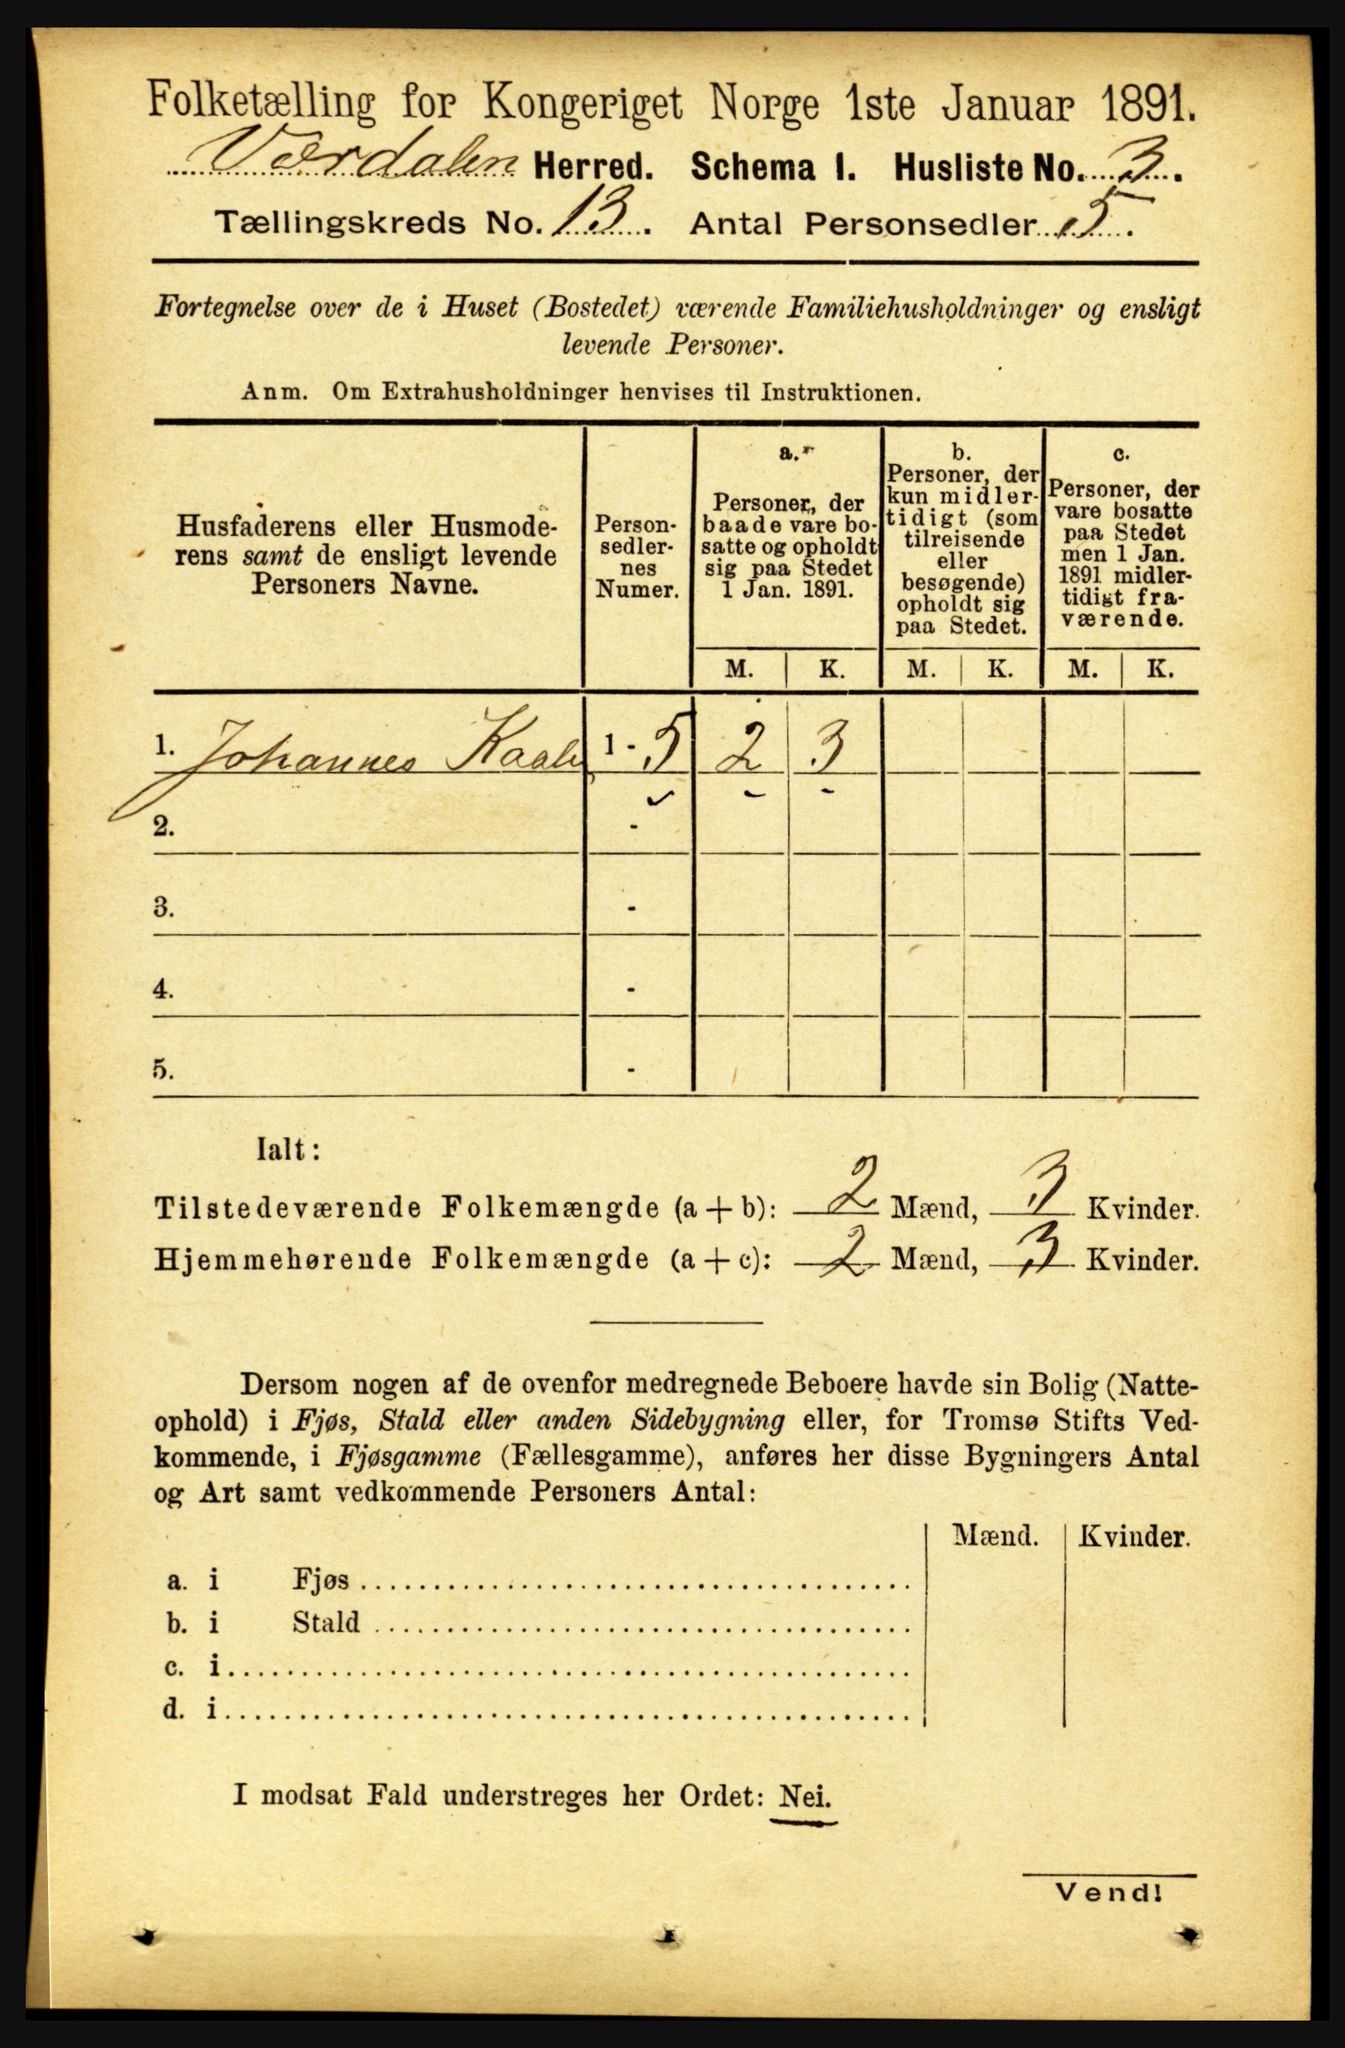 Folketælling for Kongeriget Norge 1ste Januar 1891.
Værdalen Herred. Schema I. Husliste No. 3.
Tællingskreds No. 13. Antal Personsedler 5.
Fortegnelse over de i Huset (Bostedet) værende Familiehusholdninger og ensligt
levende Personer.
Anm. Om Extrahusholdninger henvises til Instruktionen.
Husfaderens eller Husmode-
rens samt de ensligt levende
Personers Navne.
Person-
sedler-
nes
Numer.
a.
Personer, der
baade vare bo-
satte og opholdt
sig paa Stedet
1 Jan. 1891.
b.
Personer, der
kun midler-
tidigt (som
tilreisende
eller
besøgende)
opholdt sig
paa Stedet.
c.
Personer, der
vare bosatte
paa Stedet
men 1 Jan.
1891 midler-
tidigt fra-
værende.
M. K. M. K. M. K.
1. Johannes 1 - 5 2 3
2. -
3. -
4. -
5. -
Ialt:
Tilstedeværende Folkemængde (a + b): 2 Mænd, 3 Kvinder.
Hjemmehørende Folkemængde (a + c): 2 Mænd, 3 Kvinder.
Dersom nogen af de ovenfor medregnede Beboere havde sin Bolig (Natte-
ophold) i Fjøs, Stald eller anden Sidebygning eller, for Tromsø Stifts Ved-
kommende, i Fjøsgamme (Fællesgamme), anføres her disse Bygningers Antal
og Art samt vedkommende Personers Antal:
Mænd. Kvinder.
a. i Fjøs
b. i Stald
c. i
d. i
I modsat Fald understreges her Ordet: Nei.
Vend!